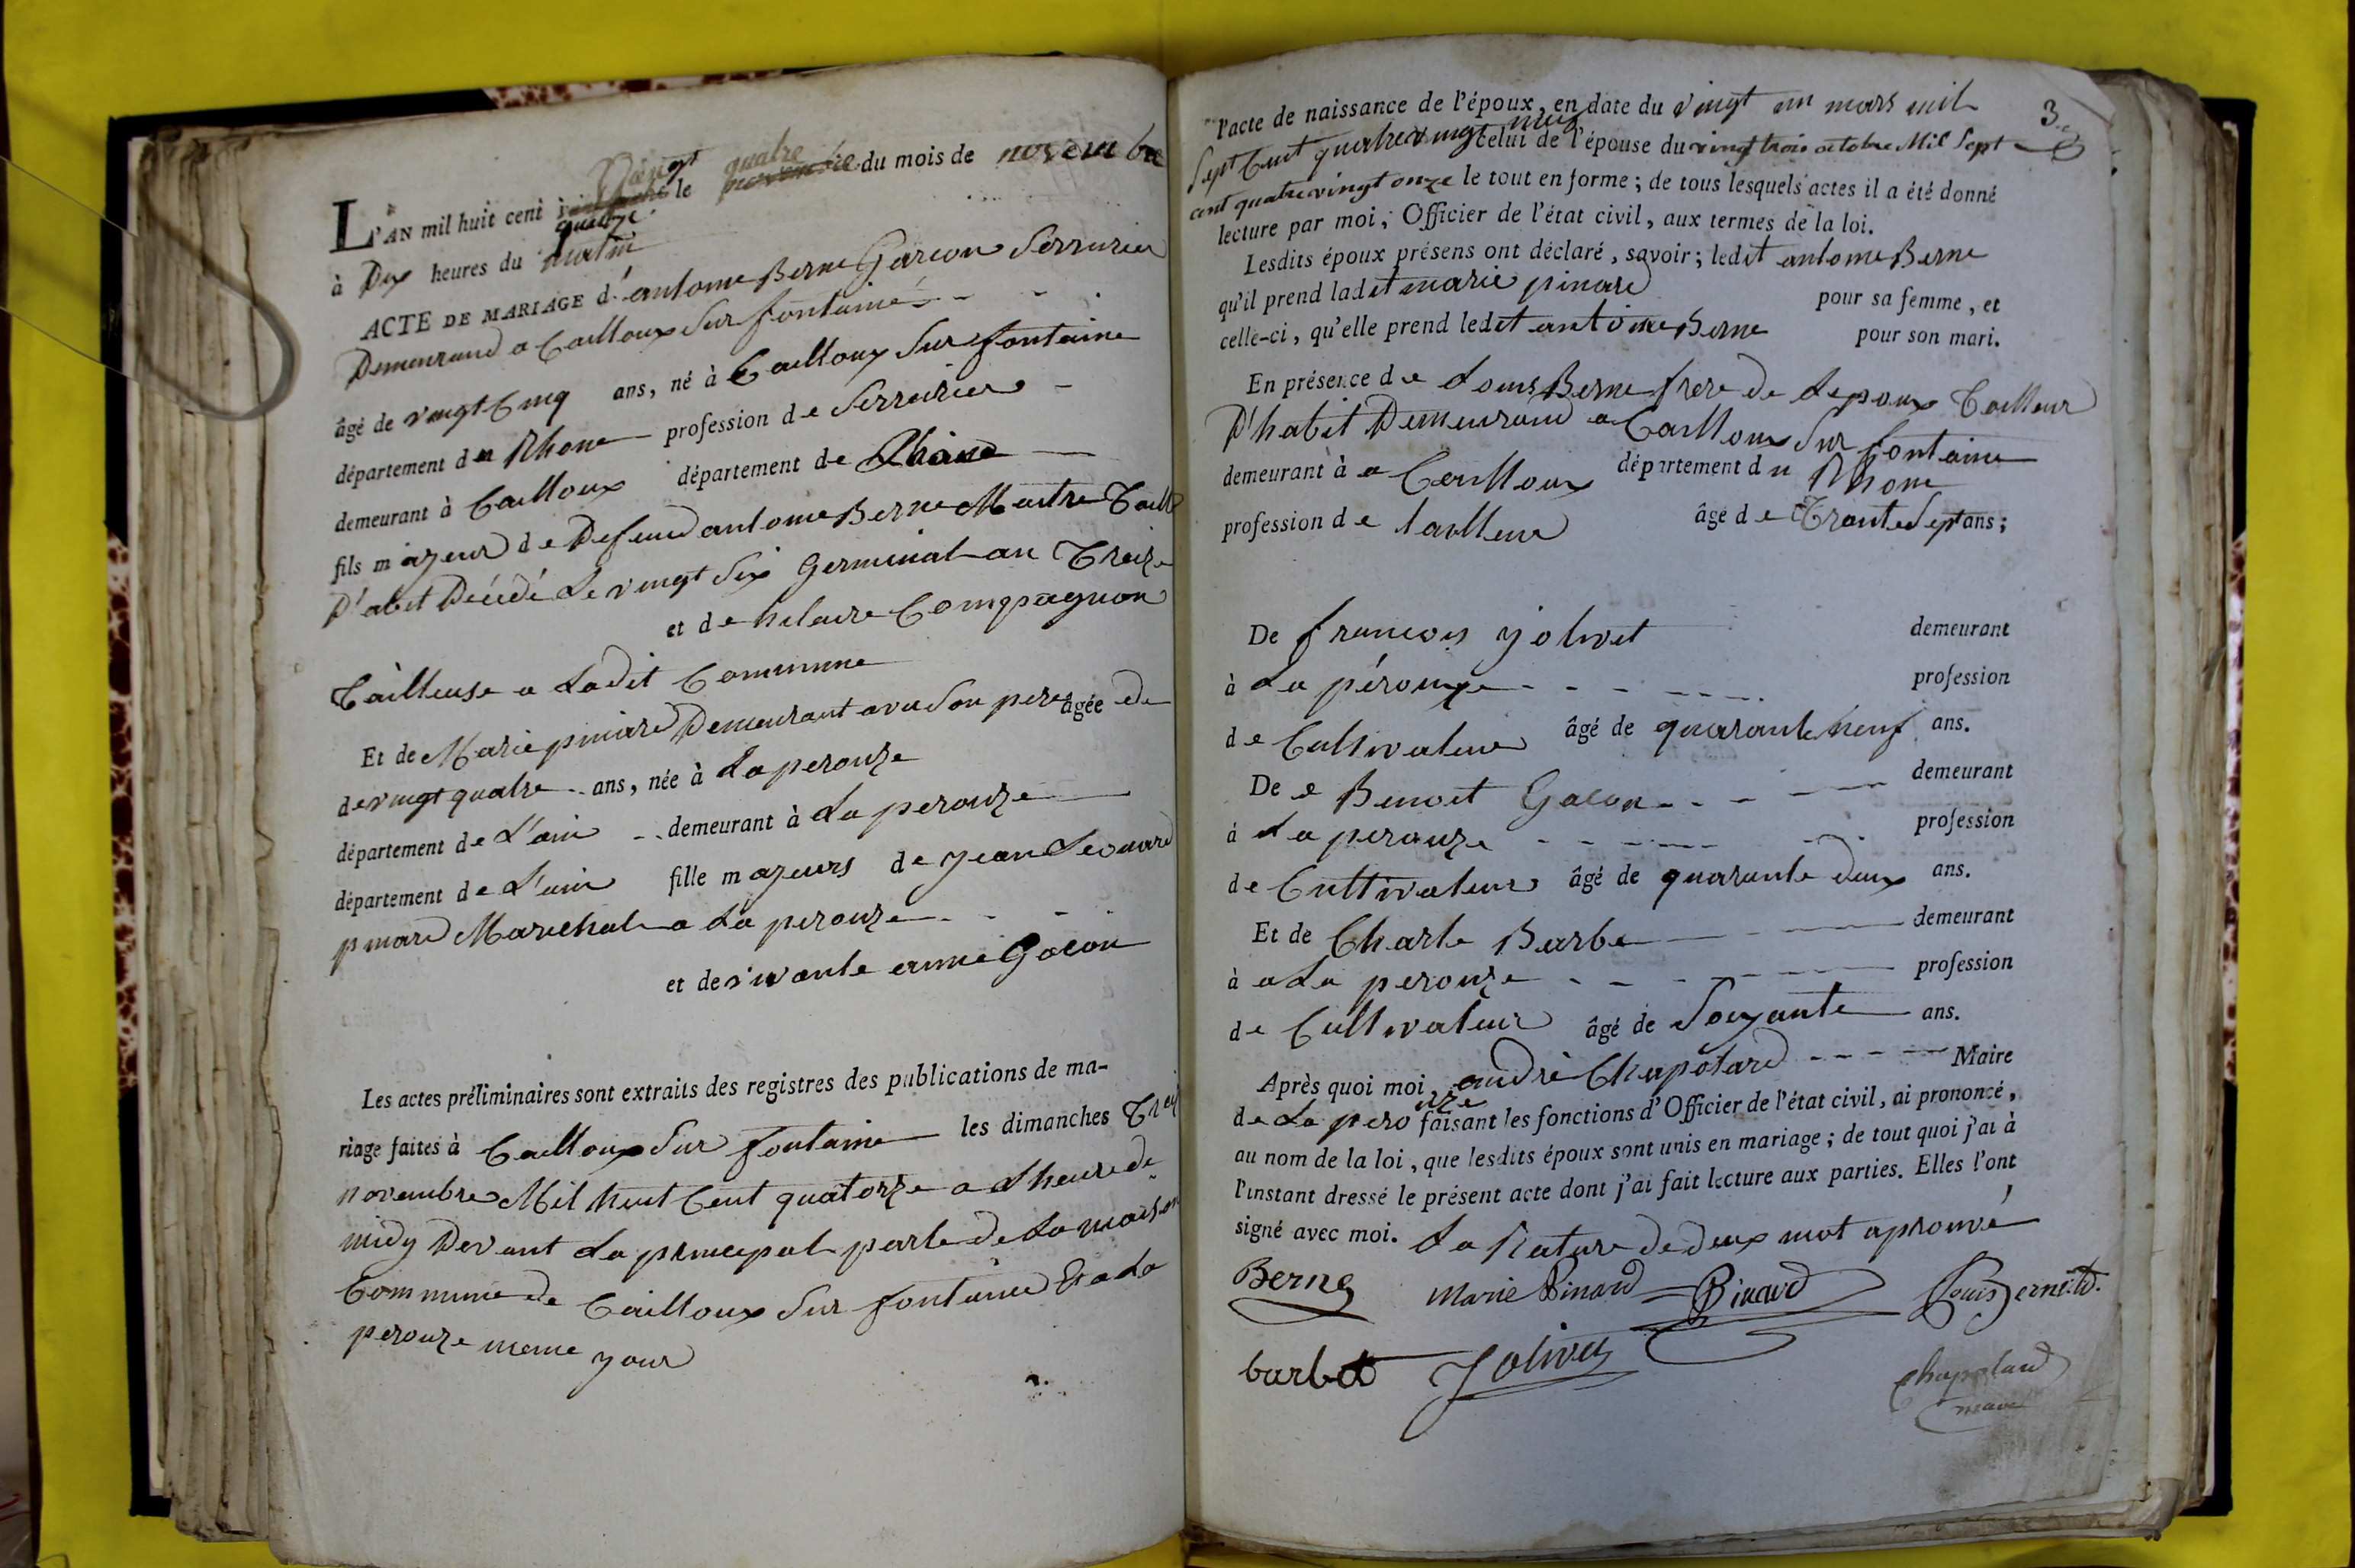 L'AN mil huit cent quatorze le vingt quatre du mois de novembre
à Dix heures du matin
ACTE DE MARIAGE d'antoine Berne Garcon Serrurier
Demeurand a Cailloux Sur fontaine
âgé de vingt Cinq ans, né à Cailloux Sur fontaine
département du Rhone profession de Serrurier
demeurant à Cailloux département de Rhône
fils majeur de Defeund antoine Berne Maitre Taill
D'abit Décédé Le vingt Six Germinal an Treize
et de hilaire Compagnon
Tailleuse a Ladit Commune
Et de Marie pinard Demeurant avec Son pere âgée de
de vingt quatre ans, née à La perouze
département de L'ain demeurant à La perouze
département de L'ain fille majeurs de jean Leonard
pinard Marechal a La perouze
et de vivante anne Gacon
Les actes préliminaires sont extraits des registres des publications de ma-
riage faites à Cailloux Sur fontaine les dimanches
novembre Mil huit Cent quatorze a Lheure de
midy Devant La principal porte de La maison
Commune de Cailloux Sur fontaine Et a La
perouze meme jour
3e
l'acte de naissance de l'époux, en date du vingt un mars mil
Sept Cent quatre vingt neuf celui de l'épouse du vingt trois octobre Mil Sept
cent quatre vingt onze le tout en forme; de tous lesquels actes il a été donné
lecture par moi, Officier de l'état civil, aux termes de la loi.
Lesdits époux présens ont déclaré, savoir; ledit antoine Berne
qu'il prend ladit marie pinard pour sa femme, et
celle-ci, qu'elle prend ledit antoine Berne pour son mari.
En présence de Louis Berne frere de Lepoux Tailleur
D'habit Demeurand a Cailloux Sur fontaine
demeurant à a Cailloux département du Rhone
profession de tailleur âgé de Trante Sept ans;
De francois jolivet demeurant
à La pérouze profession
de Cultivateur âgé de quarante neuf ans.
De e Benoit Gacon demeurant
à La perouze profession
de Cultivateur âgé de quarante deux ans.
Et de Charle Barbe demeurant
à a La perouze profession
de Cultivateur âgé de Soixante ans.
Après quoi moi, andré Chapotard Maire
de La perouze faisant les fonctions d'Officier de l'état civil, ai prononcé,
au nom de la loi, que lesdits époux sont unis en mariage; de tout quoi j'ai à
l'instant dressé le présent acte dont j'ai fait lecture aux parties. Elles l'ont
signé avec moi. La Rature de deux mot aprouvé
Berne Marie Pinard Pinard Louis Berne
barbet Jolivet
Chapotard
maire